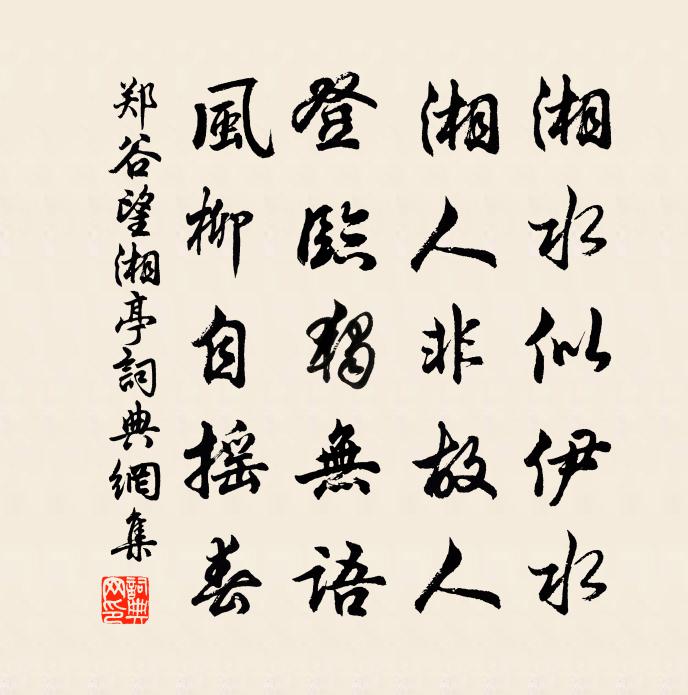 湘水似伊水
湘人非故人
登臨獨無語
風柳自搖春
郑谷望湘亭詞典網集
詞典網印